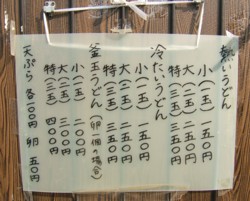 熱いうどん
小(一玉)一五〇円
大(二玉)二五〇円
特(三玉)三五〇円
冷たいうどん
小(一玉)一五〇円
大(二玉)二五〇円
特(三玉)三五〇円
釜玉うどん(卵一個の場合)
小(一玉)二〇〇円
大(二玉)三〇〇円
特(三玉)四〇〇円
天ぷら 各一〇〇円 卵 五〇円